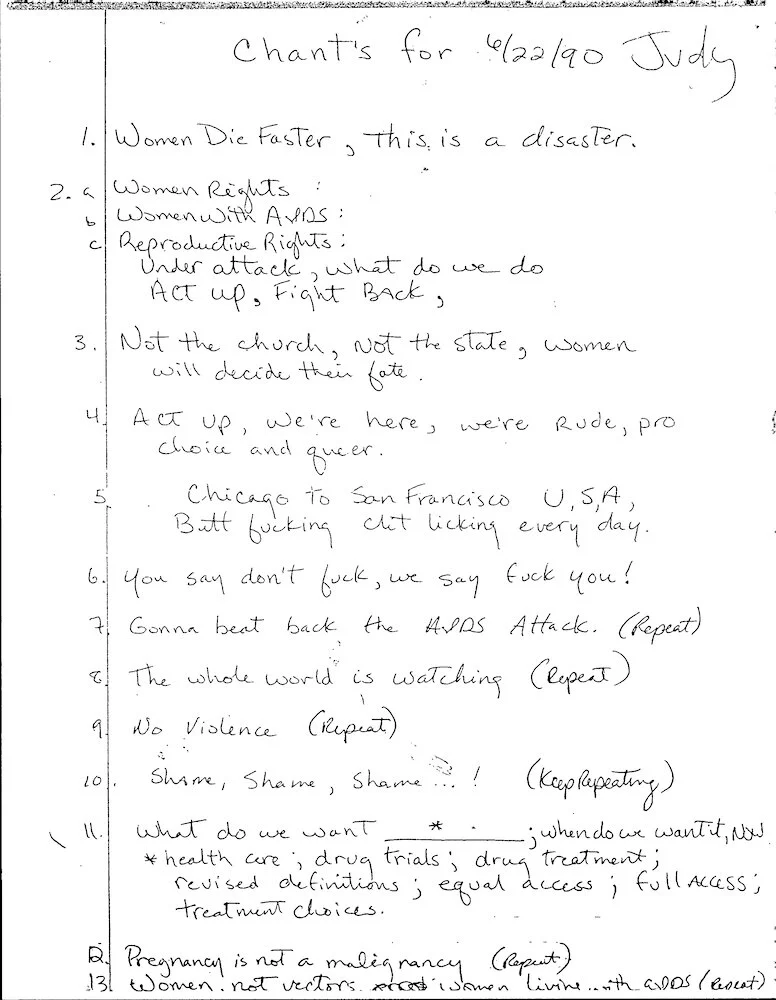 Chant's for 6/22/90 Judy
1. Women Die Faster, this is a disaster.
2. a Women Rights :
b Women With AIDS :
c Reproductive Rights :
Under attack, what do we do
ACT up, Fight Back,
3. Not the church, not the state, women
will decide their fate.
4. ACT up, we're here, we're Rude, pro
choice and queer.
5 Chicago to San Francisco U,S,A,
Butt fucking clit licking every day.
6. you say don't fuck, we say fuck you!
7. Gonna beat back the AIDS Attack. (Repeat)
8. The whole world is watching (Repeat)
9. No Violence (Repeat)
10. Shame, Shame, Shame...! (Keep Repeating)
11. What do we want ___*___; when do we want it, Now
* health care; drug trials; drug treatment;
revised definitions; equal access; full ACCESS;
treatment choices.
12. Pregnancy is not a malignancy (Repeat)
13. Women not vectors women with AIDS (Repeat)